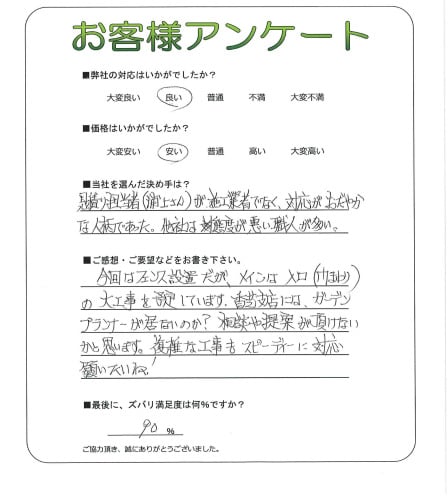 お客様アンケート
■弊社の対応はいかがでしたか?
大変良い 良い 普通 不満 大変不満
■価格はいかがでしたか?
大変安い 安い 普通 高い 大変高い
■当社を選んだ決め手は?
見積り担当者(浦上さん)が施工業者でなく、対応がおだやか
な人柄であった。他社は態度が悪い職人が多い。
■ご感想・ご要望などをお書き下さい。
今回はフェンス設置だが、メインは入口
の大工事を予定しています。支店には、ガーデン
プランナーが居ないのか?相談や提案が頂けない
かと思います。複雑な工事もスピーディーに対応
願いたいね。
■最後に、ズバリ満足度は何%ですか?
90 %
ご協力頂き、誠にありがとうございました。